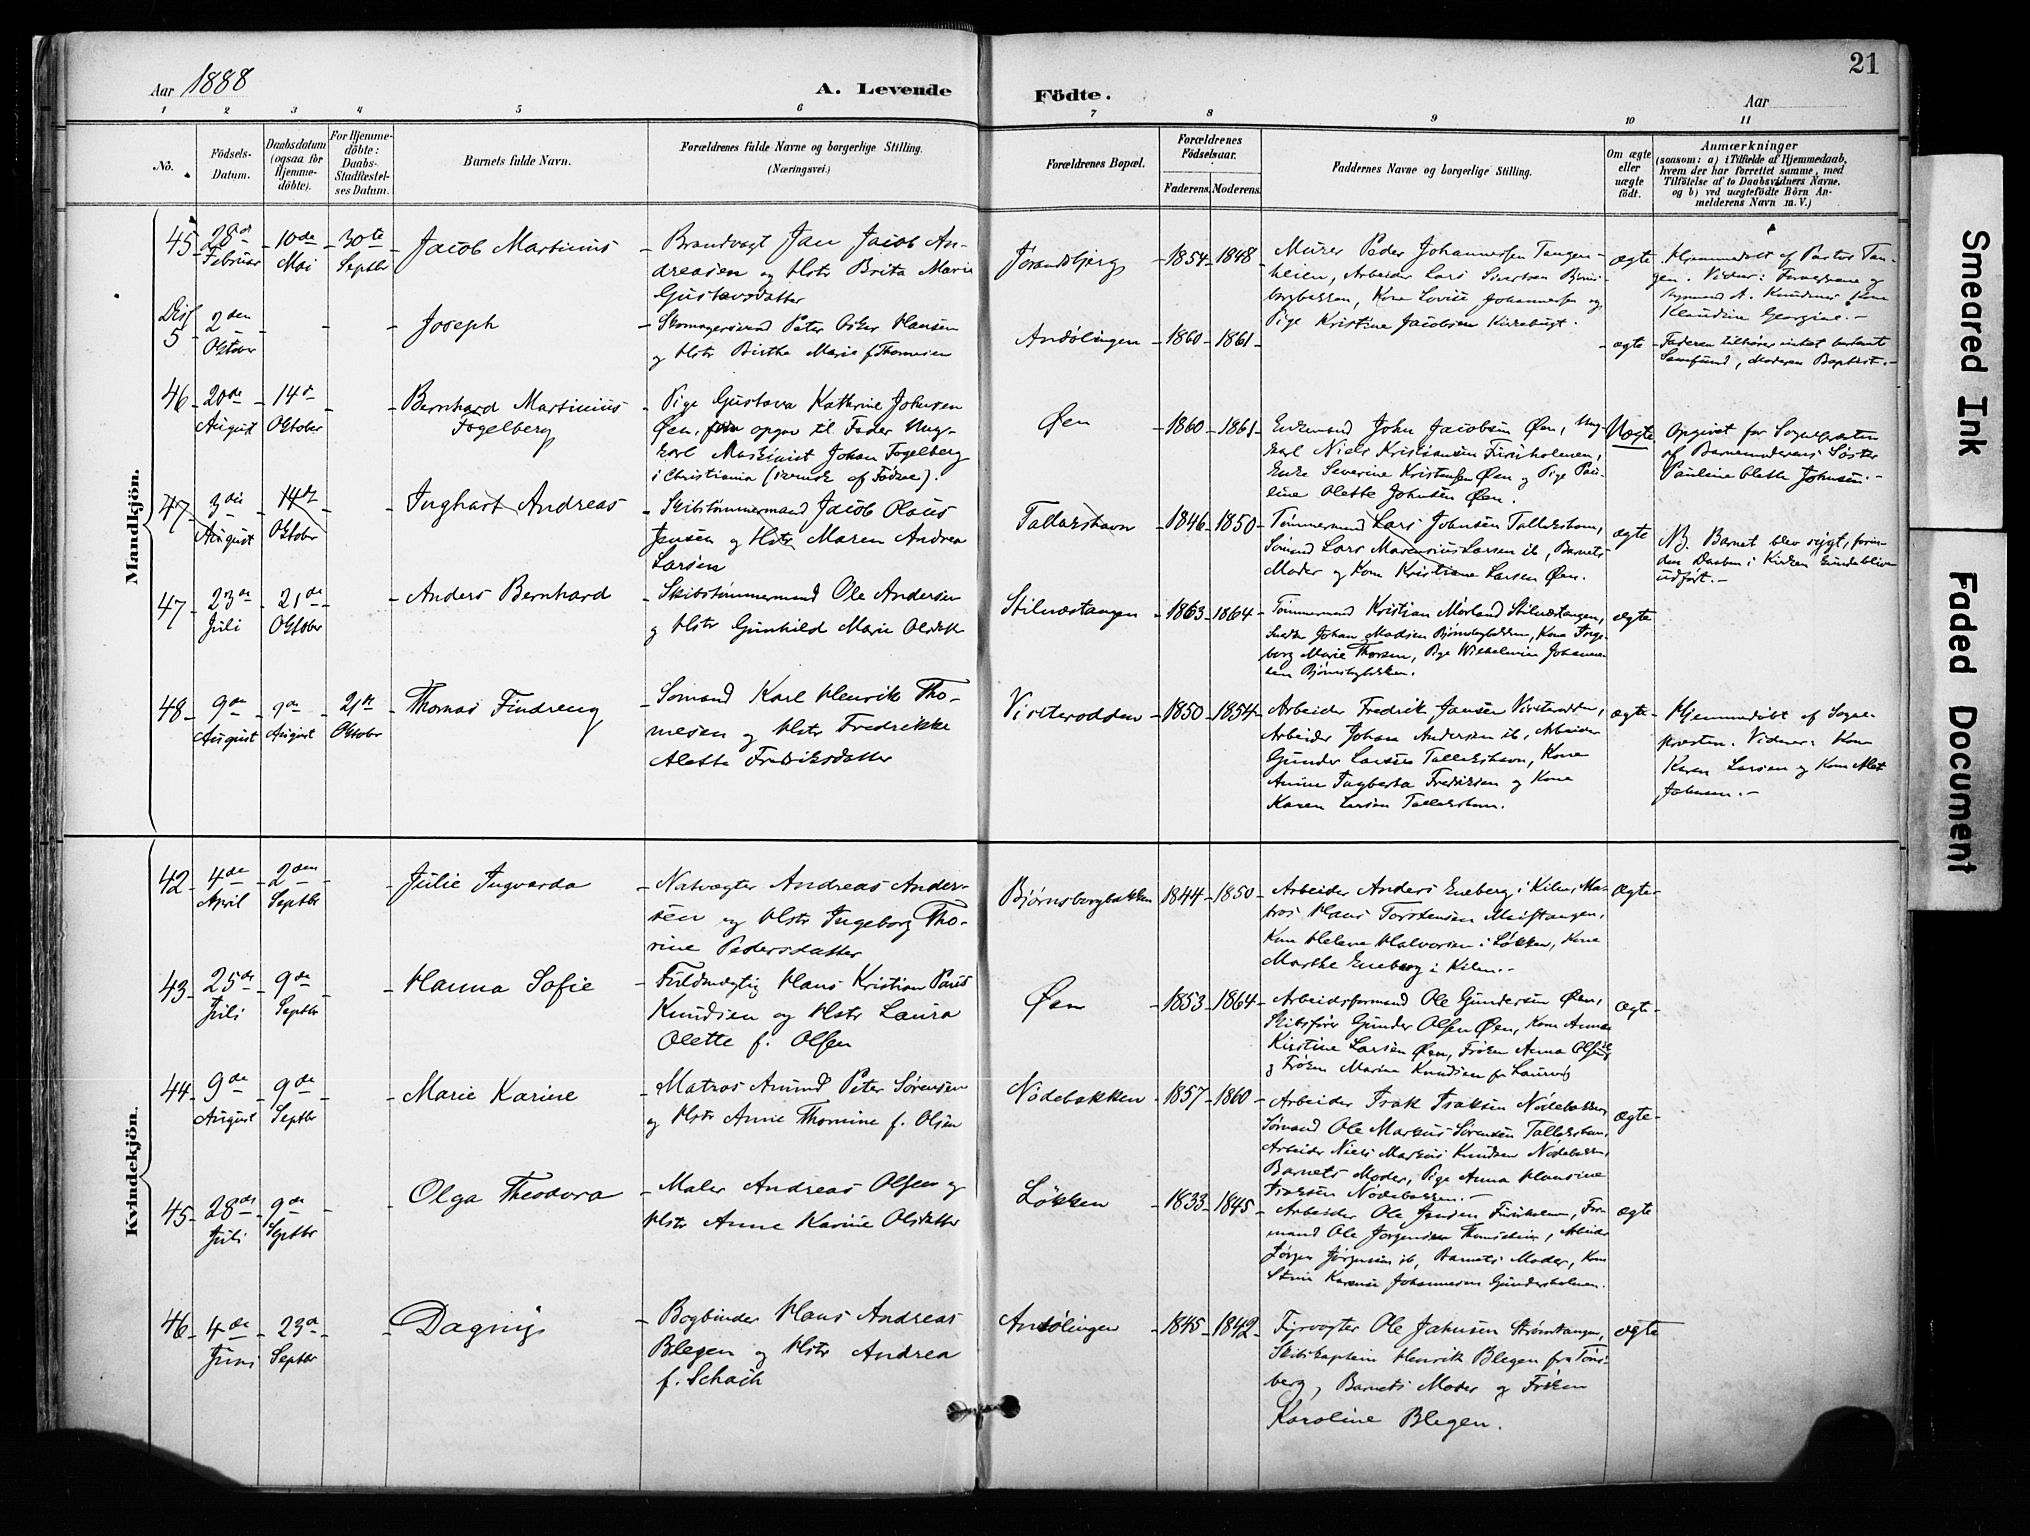 21
Aar 1888
A. Levende
Födte.
Aar
1 2 3 4 5 6 7 8 9 10 11
No.
Födsels-
Datum.
Daabsdatum
(ogsaa for
Hjemme-
döbte).
For Hjemme-
döbte:
Daabs-
Stadfæstel-
ses Datum.
Barnets fulde Navn.
Forældrenes fulde Navne og borgerlige Stilling.
(Næringsvei.)
Forældrenes Bopæl.
Forældrenes
Födselsaar.
Faderens.
Moderens.
Faddernes Navne og borgerlige Stilling.
Om ægte
eller
uægte
födt.
Anmærkninger
(saasom: a) i Tilfælde af Hjemmedaab,
hvem der har forrettet samme, med
Tilföielse af to Daabsvidners Navne,
og b) ved uægtefödte Börn An-
melderens Navn m. V.)
Mandkjön.
45
28de
Februar
10de
Mai
30te
Septbr
Jacob Martinius
Brandvagt Jan Jacob An-
dreasen og Hstr Brita Marie
Gustavsdatter
1854
1848
Murer Peder Johannessen Tangen-
heien, Arbeider Lars Sivertsen
Kone Lovise Johannessen og
Pige Kristine Jacobsen
ægte
Hjemmedøbt af Pastor Tan-
gen. Vidner:
Klaudine Georgine.
Dis
5
2den
Oktober
Joseph
Skomagersvend Peter Oskar Hansen
og Hstr Birthe Marie f. Thomesen
Andølingen
1860
1861
ægte
Faderen tilhører intet bestemt
Samfund, Moderen Baptist.
46
20de
August
14de
Oktober
Bernhard Martinius
Fogelberg
Pige Gustava Kathrine Johnsen
Øen, opgav til Fader Ung-
karl Maskinist Johan Fogelberg
i Christiania (svensk af Fødsel).
Øen
1860
1861
Enkemand John Jacobsen Øen, Ung-
karl Niels Kristiansen Furuholmen,
Enke Severine Kristensen Øen og Pige Pau-
line Olette Johnsen Øen.
Uægte
Opgivet for Sognepresten
af Barnemoderens Søster
Pauline Olette Johnsen.
47
3die
August
14de
Oktober
Inghart Andreas
Skibstømmermand Jacob Olaus
Jensen og Hstr Maren Andrea
Larsen
Tallakshavn
1846
1850
Tømmermand Lars Johnsen Tallakshavn,
Sømand Lars Marensius Larsen ib, Barnets
Moder og Kone Kristiane Larsen Øen.
ægte
NB. Barnet blev sygt, forin-
den Daaben i Kirken kunde blive
udført.
47
23de
Juli
21de
Oktober
Anders Bernhard
Skibstømmermand Ole Andersen
og Hstr Gunhild Marie Olsdtr
Stilnæstangen
1863
1864
Tømmermand Kristian Mørland Stilnæstangen,
Johan Madsen Kone Inge-
borg Marie Thorsen, Pige Wilhelmine Johanne-
sen
ægte
48
9de
August
9de
August
21de
Oktober
Thomas Findreng
Sømand Karl Henrik Tho-
mesen og Hstr Fredrikke
Alette Fredriksdatter
Virsterodden
1850
1854
Arbeider Fredrik Jansen Virsterodden,
Arbeider Johan Andersen ib, Arbeider
Gunder Larsen Tallakshavn, Kone
Anne Ingberta Fredriksen og Kone
Karen Larsen Tallakshavn.
ægte
Hjemmedøbt af Sogne-
præsten. Vidner: Kone
Karen Larsen og Kone Alet
Johnsen.
Kvindekjön.
42
4de
April
2den
Septbr
Julie Ingvarda
Natvægter Andreas Ander-
sen og Hstr Ingeborg Tho-
rine Pedersdatter
Bjørnsborgbakken
1844
1850
Arbeider Anders Eneberg i Kilen, Ma-
tros Hans Torstensen
Kone Helene Halvorsen i Løkken, Kone
Marthe Eneberg i Kilen.
ægte
43
25de
Juli
9de
Septbr
Hanna Sofie
Fuldmægtig Hans Kristian Paus
Knudsen og Hstr Laura
Olette f. Olsen
Øen
1853
1864
Arbeidsformand Ole Gundersen Øen,
Skibsfører Gunder Olsen Øen, Kone Anna
Kirstine Larsen Øen, Frøken Anna Olsen
og Frøken Marine Knudsen fra Laurvig
ægte
44
9de
August
9de
Septbr
Marie Karine
Matros Amund Peter Sørensen
og Hstr Anne Thomine f. Olsen
Nødebakken
1857
1860
Arbeider Isak Isaksen Nødebakken,
Sømand Ole Markus Sørensen Tallakshavn,
Arbeider Niels Markus Knudsen Nødebakken,
Barnets Moder, Pige Anna Hansine
Isaksen Nødebakken.
ægte
45
28de
Juli
9de
Septbr
Olga Theodora
Maler Andreas Olsen og
Hstr Anne Karine Olsdatter
Løkken
1833
1845
Arbeider Ole Jensen Furuholmen, For-
mand Ole Jørgensen Arbeider
Jørgen Jørgensen ib, Barnets Moder, Kone
Stine Karense Johannesen Gundersholmen.
ægte
46
4de
Juni
23de
Septbr
Dagny
Bogbinder Hans Andreas
Blegen og Hstr Andrea
f. Schack
Andølingen
1845
1842
Fyrvogter Ole Johnsen Strømtangen,
Skibskaptein Henrik Blegen fra Tøns-
berg, Barnets Moder og Frøken
Karoline Blegen.
ægte
Smeared Ink
Faded Document